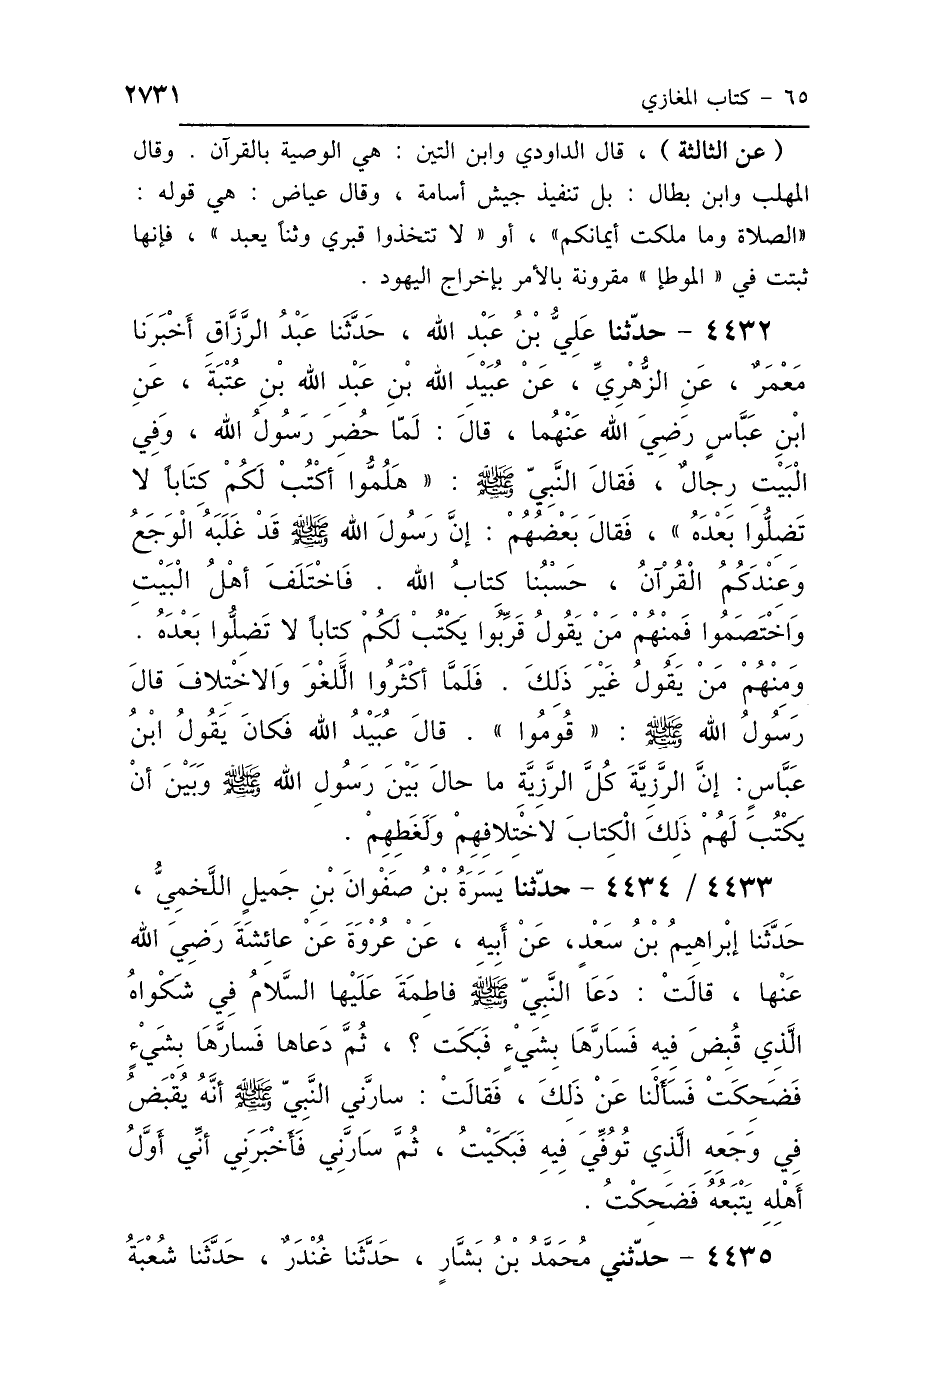 ٦٥ - كتاب المغازي ٢٧٣١
( عن الثالثة ) ، قال الداودي وابن التين : هي الوصية بالقرآن . وقال
المهلب وابن بطال : بل تنفيذ جيش أسامة ، وقال عياض : هي قوله :
«الصلاة وما ملكت أيمانكم» ، أو « لا تتخذوا قبري وثناً يعبد » ، فإنها
ثبتت في « الموطإ » مقرونة بالأمر بإخراج اليهود .
٤٤٣٢ - حدّثنا عَلِيُّ بْنُ عَبْدِ الله ، حَدَّثَنا عَبْدُ الرَّزَّاقِ أَخْبَرَنا
مَعْمَرٌ ، عَنِ الزُّهْرِيِّ ، عَنْ عُبَيْدِ الله بْنِ عَبْدِ الله بْنِ عُتْبَةَ ، عَنِ
ابْنِ عَبَّاسٍ رَضِيَ الله عَنْهُما ، قالَ : لَمّا حُضِرَ رَسُولُ الله ، وَفِي
الْبَيْتِ رِجالٌ ، فَقالَ النَّبِيّ ﷺ : « هَلُمُّوا أكْتُبْ لَكُمْ كِتَاباً لا
تَضِلُّوا بَعْدَهُ » ، فَقالَ بَعْضُهُمْ : إنَّ رَسُولَ الله ﷺ قَدْ غَلَبَهُ الْوَجَعُ
وَعِنْدَكُمُ الْقُرْآنُ ، حَسْبُنا كتابُ الله . فَاخْتَلَفَ أهْلُ الْبَيْتِ
وَاخْتَصَمُوا فَمِنْهُمْ مَنْ يَقُولُ قَرِّبُوا يَكْتُبْ لَكُمْ كتاباً لا تَضِلُّوا بَعْدَهُ .
وَمِنْهُمْ مَنْ يَقُولُ غَيْرَ ذَلِكَ . فَلَمَّا أكْثَرُوا اللَّغْوَ وَالاخْتِلافَ قالَ
رَسُولُ الله ﷺ : « قُومُوا » . قالَ عُبَيْدُ الله فَكانَ يَقُولُ ابْنُ
عَبَّاسٍ: إنَّ الرَّزِيَّةَ كُلَّ الرَّزِيَّةِ ما حالَ بَيْنَ رَسُولِ الله ﷺ وَبَيْنَ أنْ
يَكْتُبَ لَهُمْ ذَلِكَ الْكِتابَ لاخْتِلافِهِمْ وَلَغَطِهِمْ .
٤٤٣٣ / ٤٤٣٤ - حدّثنا يَسَرَةُ بْنُ صَفْوانَ بْنِ جَمِيلٍ اللَّخمِيُّ ،
حَدَّثَنا إبْراهِيمُ بْنُ سَعْدٍ، عَنْ أبِيهِ ، عَنْ عُرْوَةَ عَنْ عائِشَةَ رَضِيَ الله
عَنْها ، قالَتْ : دَعَا النَّبِيّ ﷺ فاطِمَةَ عَلَيْها السَّلامُ فِي شَكْواهُ
الَّذِي قُبِضَ فِيهِ فَسَارَّهَا بِشَيْءٍ فَبَكَت ؟ ، ثُمَّ دَعاها فَسارَّهَا بِشَيْءٍ
فَضَحِكَتْ فَسَأَلْنا عَنْ ذَلِكَ ، فَقالَتْ : سارَّنِي النَّبِيّ ﷺ أنَّهُ يُقْبَضُ
فِي وَجَعِهِ الَّذِي تُوُفِّيَ فِيهِ فَبَكَيْتُ ، ثُمَّ سَارَّنِي فَأَخْبَرَنِي أنِّي أَوَّلُ
أَهْلِهِ يَتْبَعُهُ فَضَحِكْتُ .
٤٤٣٥ - حدّثني مُحَمَّدُ بْنُ بَشَّارٍ ، حَدَّثَنا غُنْدَرٌ ، حَدَّثَنا شُعْبَةُ